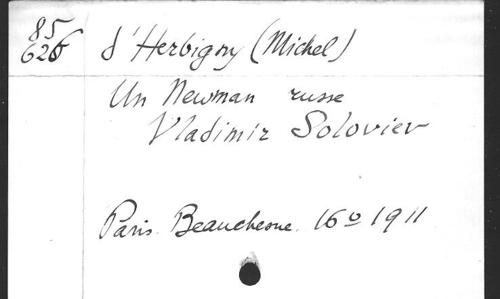 85
626
d'Herbigny (Michel)
Un Newman russe
Vladimir Soloviev
Paris. Beauchesne. 16º 1911